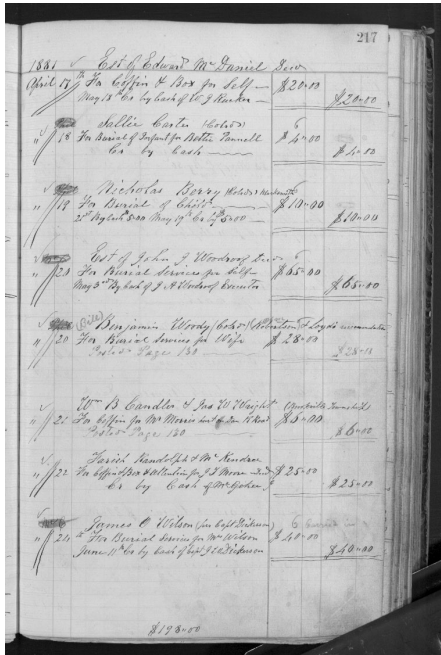 217
1881 Est of Edward McDaniel Decd
April 17th For Coffin & Box for Self $20-00
May 18th Cr by Cash of $20-00
Sallie Carter (Colored)
" 18 For Burial of Infant for Bettie Pannell $4-00
Cr by Cash $4-00
Nicholas Berry (Colored)
" 19 For Burial of Child $10-00
5-00 May 19th Cr by 5-00 $10-00
Est of John J Woodroof Decd
" 20 For Burial Services for Self $65-00
May 3rd By Cash of J A Woodroof Executor $65-00
Benjamin Woody (Colored) (Robertson & Loyds recommendation
" 20 For Burial Services for Wife $28-00
Posted Page 130 $28-00
Wm B Candler & Jas W Wright
" 22 For Coffin for Mr Morris
Posted Page 130 $6-00
Farish Randolph & McKendree
" 22 For Coffin & Box & attention for J T Moore $25-00
Cr by Cash of $25-00
James A Wilson (for Capt Dickerson)
" 24 For Burial Services for Mrs Wilson $40-00
June 11th Cr by Cash of Capt Dickerson $40-00
$198-00